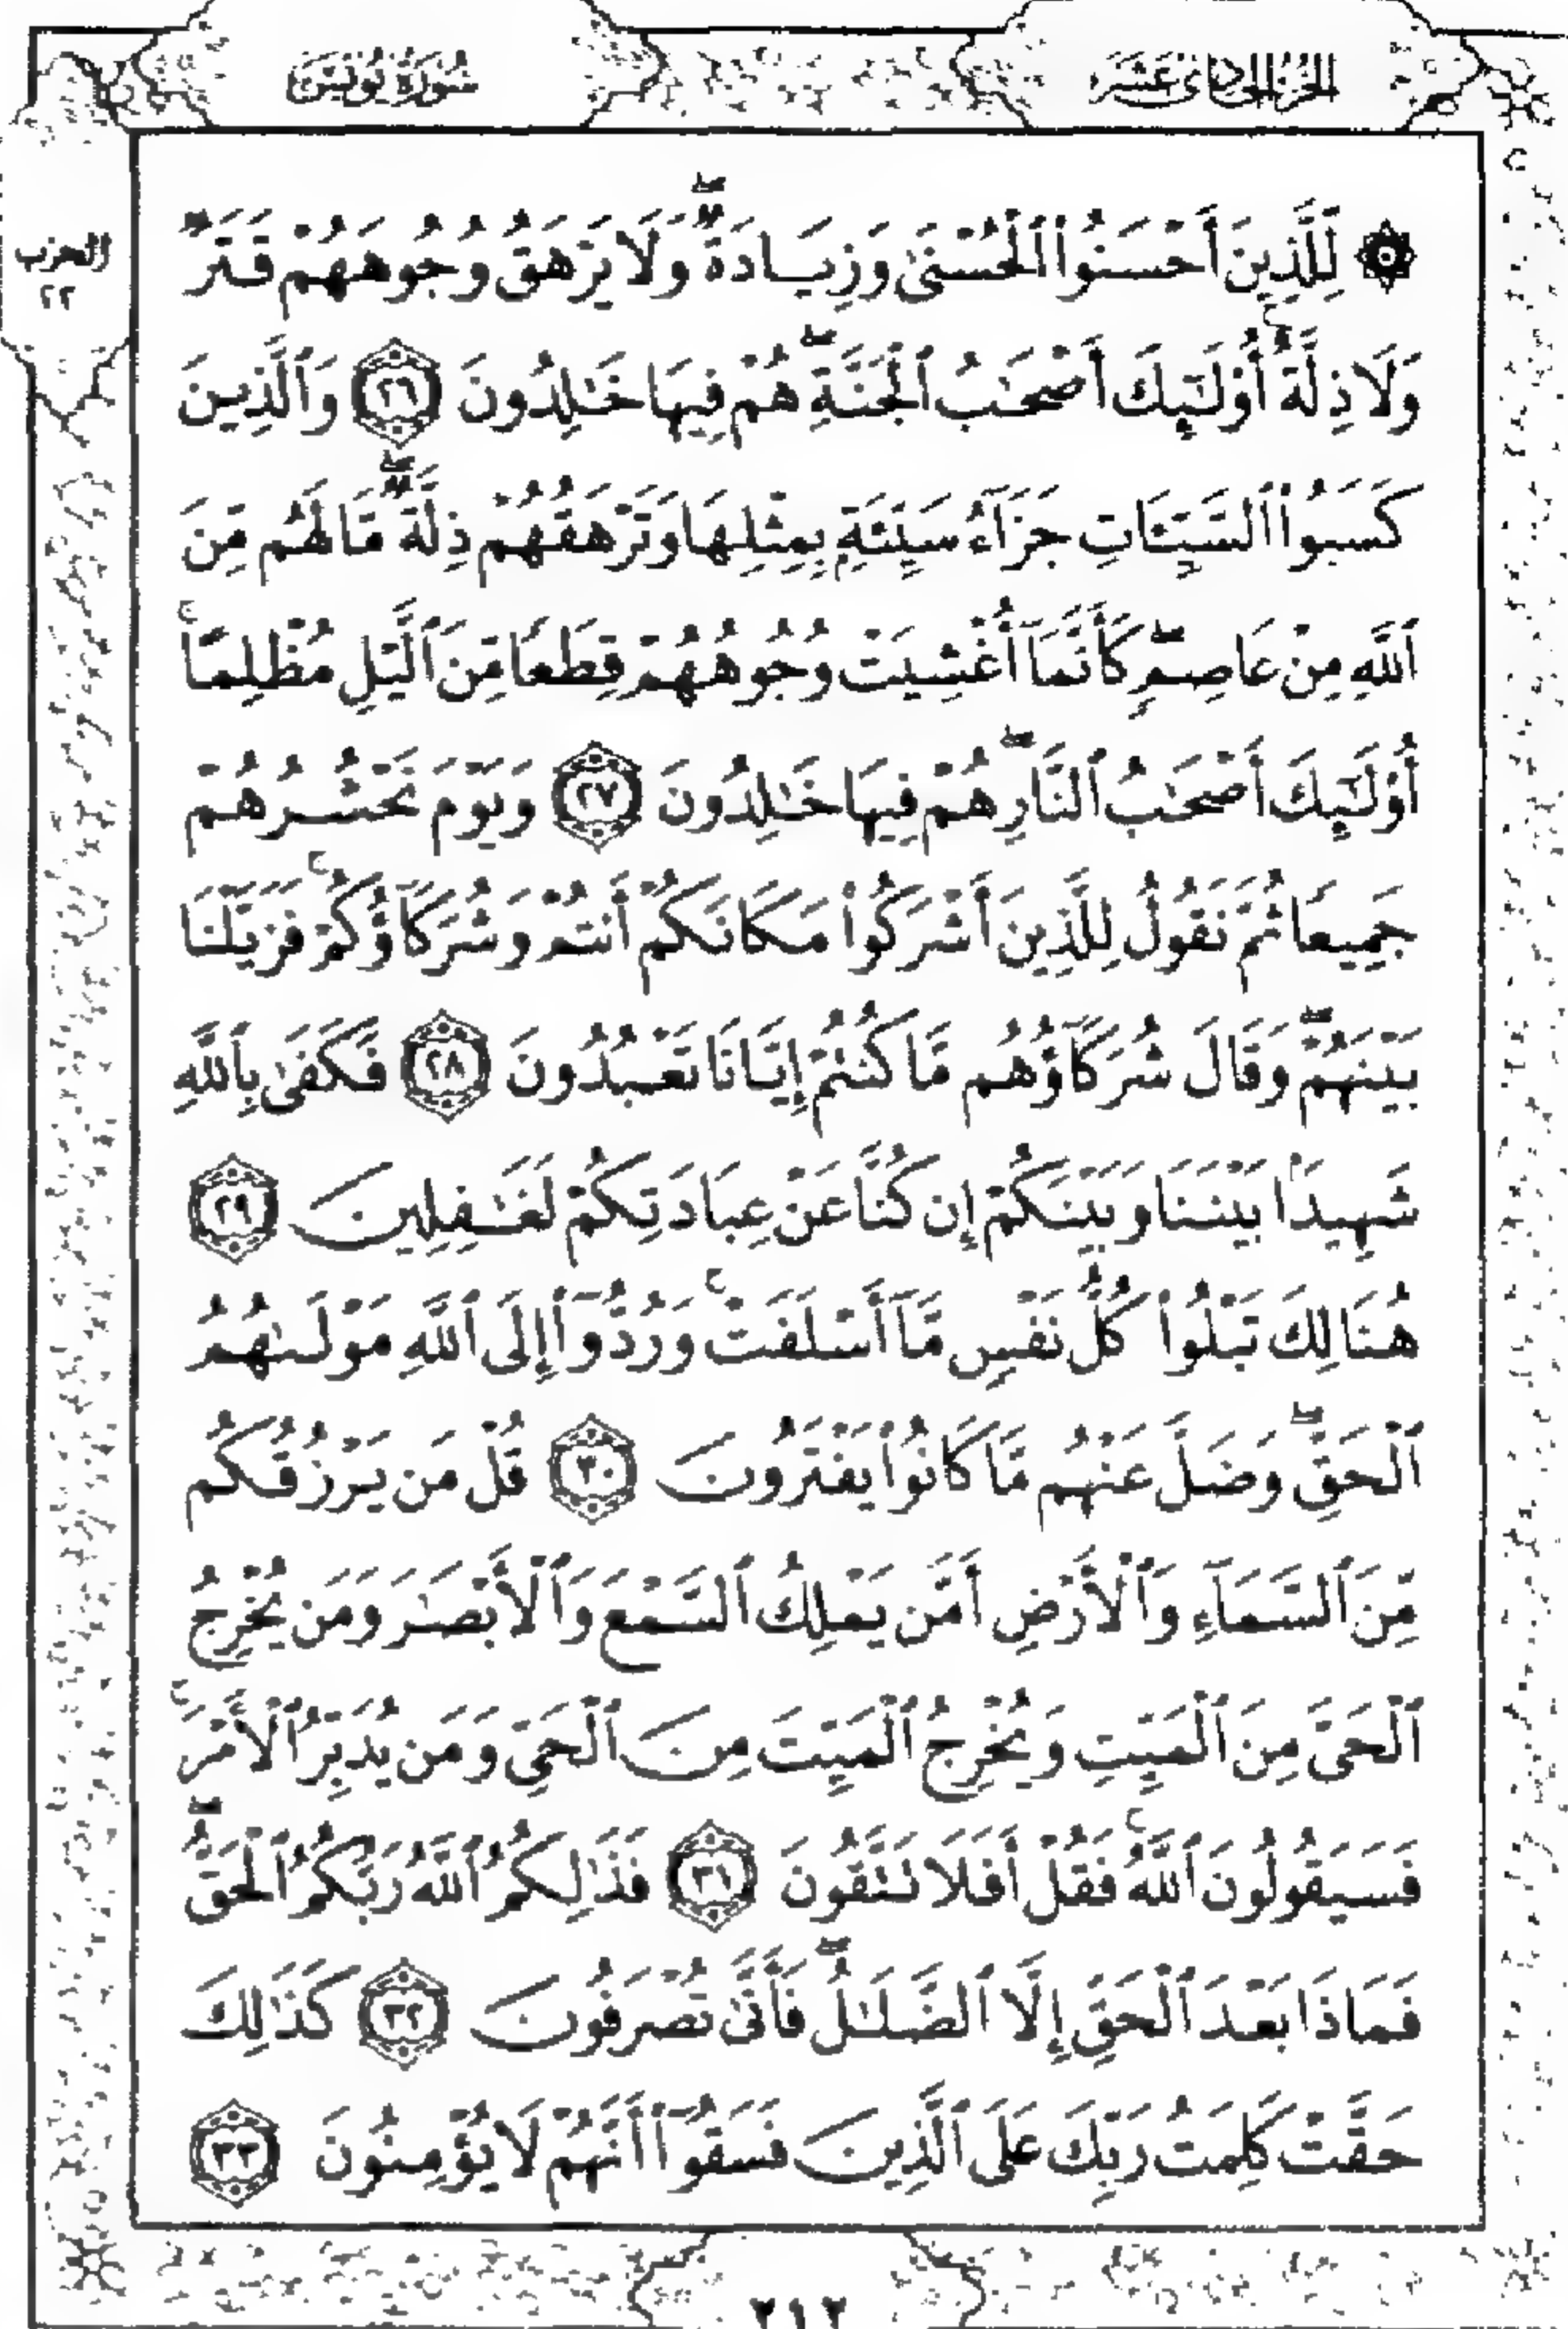 الجزء الحادى عشر
سورة يونس
الحزب
٢٢
۞ لِّلَّذِينَ أَحْسَنُوا۟ ٱلْحُسْنَىٰ وَزِيَادَةٌ ۖ وَلَا يَرْهَقُ وُجُوهَهُمْ قَتَرٌ
وَلَا ذِلَّةٌ ۚ أُو۟لَـٰٓئِكَ أَصْحَـٰبُ ٱلْجَنَّةِ ۖ هُمْ فِيهَا خَـٰلِدُونَ ٢٦ وَٱلَّذِينَ
كَسَبُوا۟ ٱلسَّيِّـَٔاتِ جَزَآءُ سَيِّئَةٍۭ بِمِثْلِهَا وَتَرْهَقُهُمْ ذِلَّةٌ ۖ مَّا لَهُم مِّنَ
ٱللَّهِ مِنْ عَاصِمٍ ۖ كَأَنَّمَآ أُغْشِيَتْ وُجُوهُهُمْ قِطَعًا مِّنَ ٱلَّيْلِ مُظْلِمًا ۚ
أُو۟لَـٰٓئِكَ أَصْحَـٰبُ ٱلنَّارِ ۖ هُمْ فِيهَا خَـٰلِدُونَ ٢٧ وَيَوْمَ نَحْشُرُهُمْ
جَمِيعًا ثُمَّ نَقُولُ لِلَّذِينَ أَشْرَكُوا۟ مَكَانَكُمْ أَنتُمْ وَشُرَكَآؤُكُمْ ۚ فَزَيَّلْنَا
بَيْنَهُمْ ۖ وَقَالَ شُرَكَآؤُهُم مَّا كُنتُمْ إِيَّانَا تَعْبُدُونَ ٢٨ فَكَفَىٰ بِٱللَّهِ
شَهِيدًۢا بَيْنَنَا وَبَيْنَكُمْ إِن كُنَّا عَنْ عِبَادَتِكُمْ لَغَـٰفِلِينَ ٢٩
هُنَالِكَ تَبْلُوا۟ كُلُّ نَفْسٍ مَّآ أَسْلَفَتْ ۚ وَرُدُّوٓا۟ إِلَى ٱللَّهِ مَوْلَىٰهُمُ
ٱلْحَقِّ ۖ وَضَلَّ عَنْهُم مَّا كَانُوا۟ يَفْتَرُونَ ٣٠ قُلْ مَن يَرْزُقُكُم
مِّنَ ٱلسَّمَآءِ وَٱلْأَرْضِ أَمَّن يَمْلِكُ ٱلسَّمْعَ وَٱلْأَبْصَـٰرَ وَمَن يُخْرِجُ
ٱلْحَىَّ مِنَ ٱلْمَيِّتِ وَيُخْرِجُ ٱلْمَيِّتَ مِنَ ٱلْحَىِّ وَمَن يُدَبِّرُ ٱلْأَمْرَ ۚ
فَسَيَقُولُونَ ٱللَّهُ ۚ فَقُلْ أَفَلَا تَتَّقُونَ ٣١ فَذَٰلِكُمُ ٱللَّهُ رَبُّكُمُ ٱلْحَقُّ ۖ
فَمَاذَا بَعْدَ ٱلْحَقِّ إِلَّا ٱلضَّلَـٰلُ ۖ فَأَنَّىٰ تُصْرَفُونَ ٣٢ كَذَٰلِكَ
حَقَّتْ كَلِمَتُ رَبِّكَ عَلَى ٱلَّذِينَ فَسَقُوٓا۟ أَنَّهُمْ لَا يُؤْمِنُونَ ٣٣
٢١٢